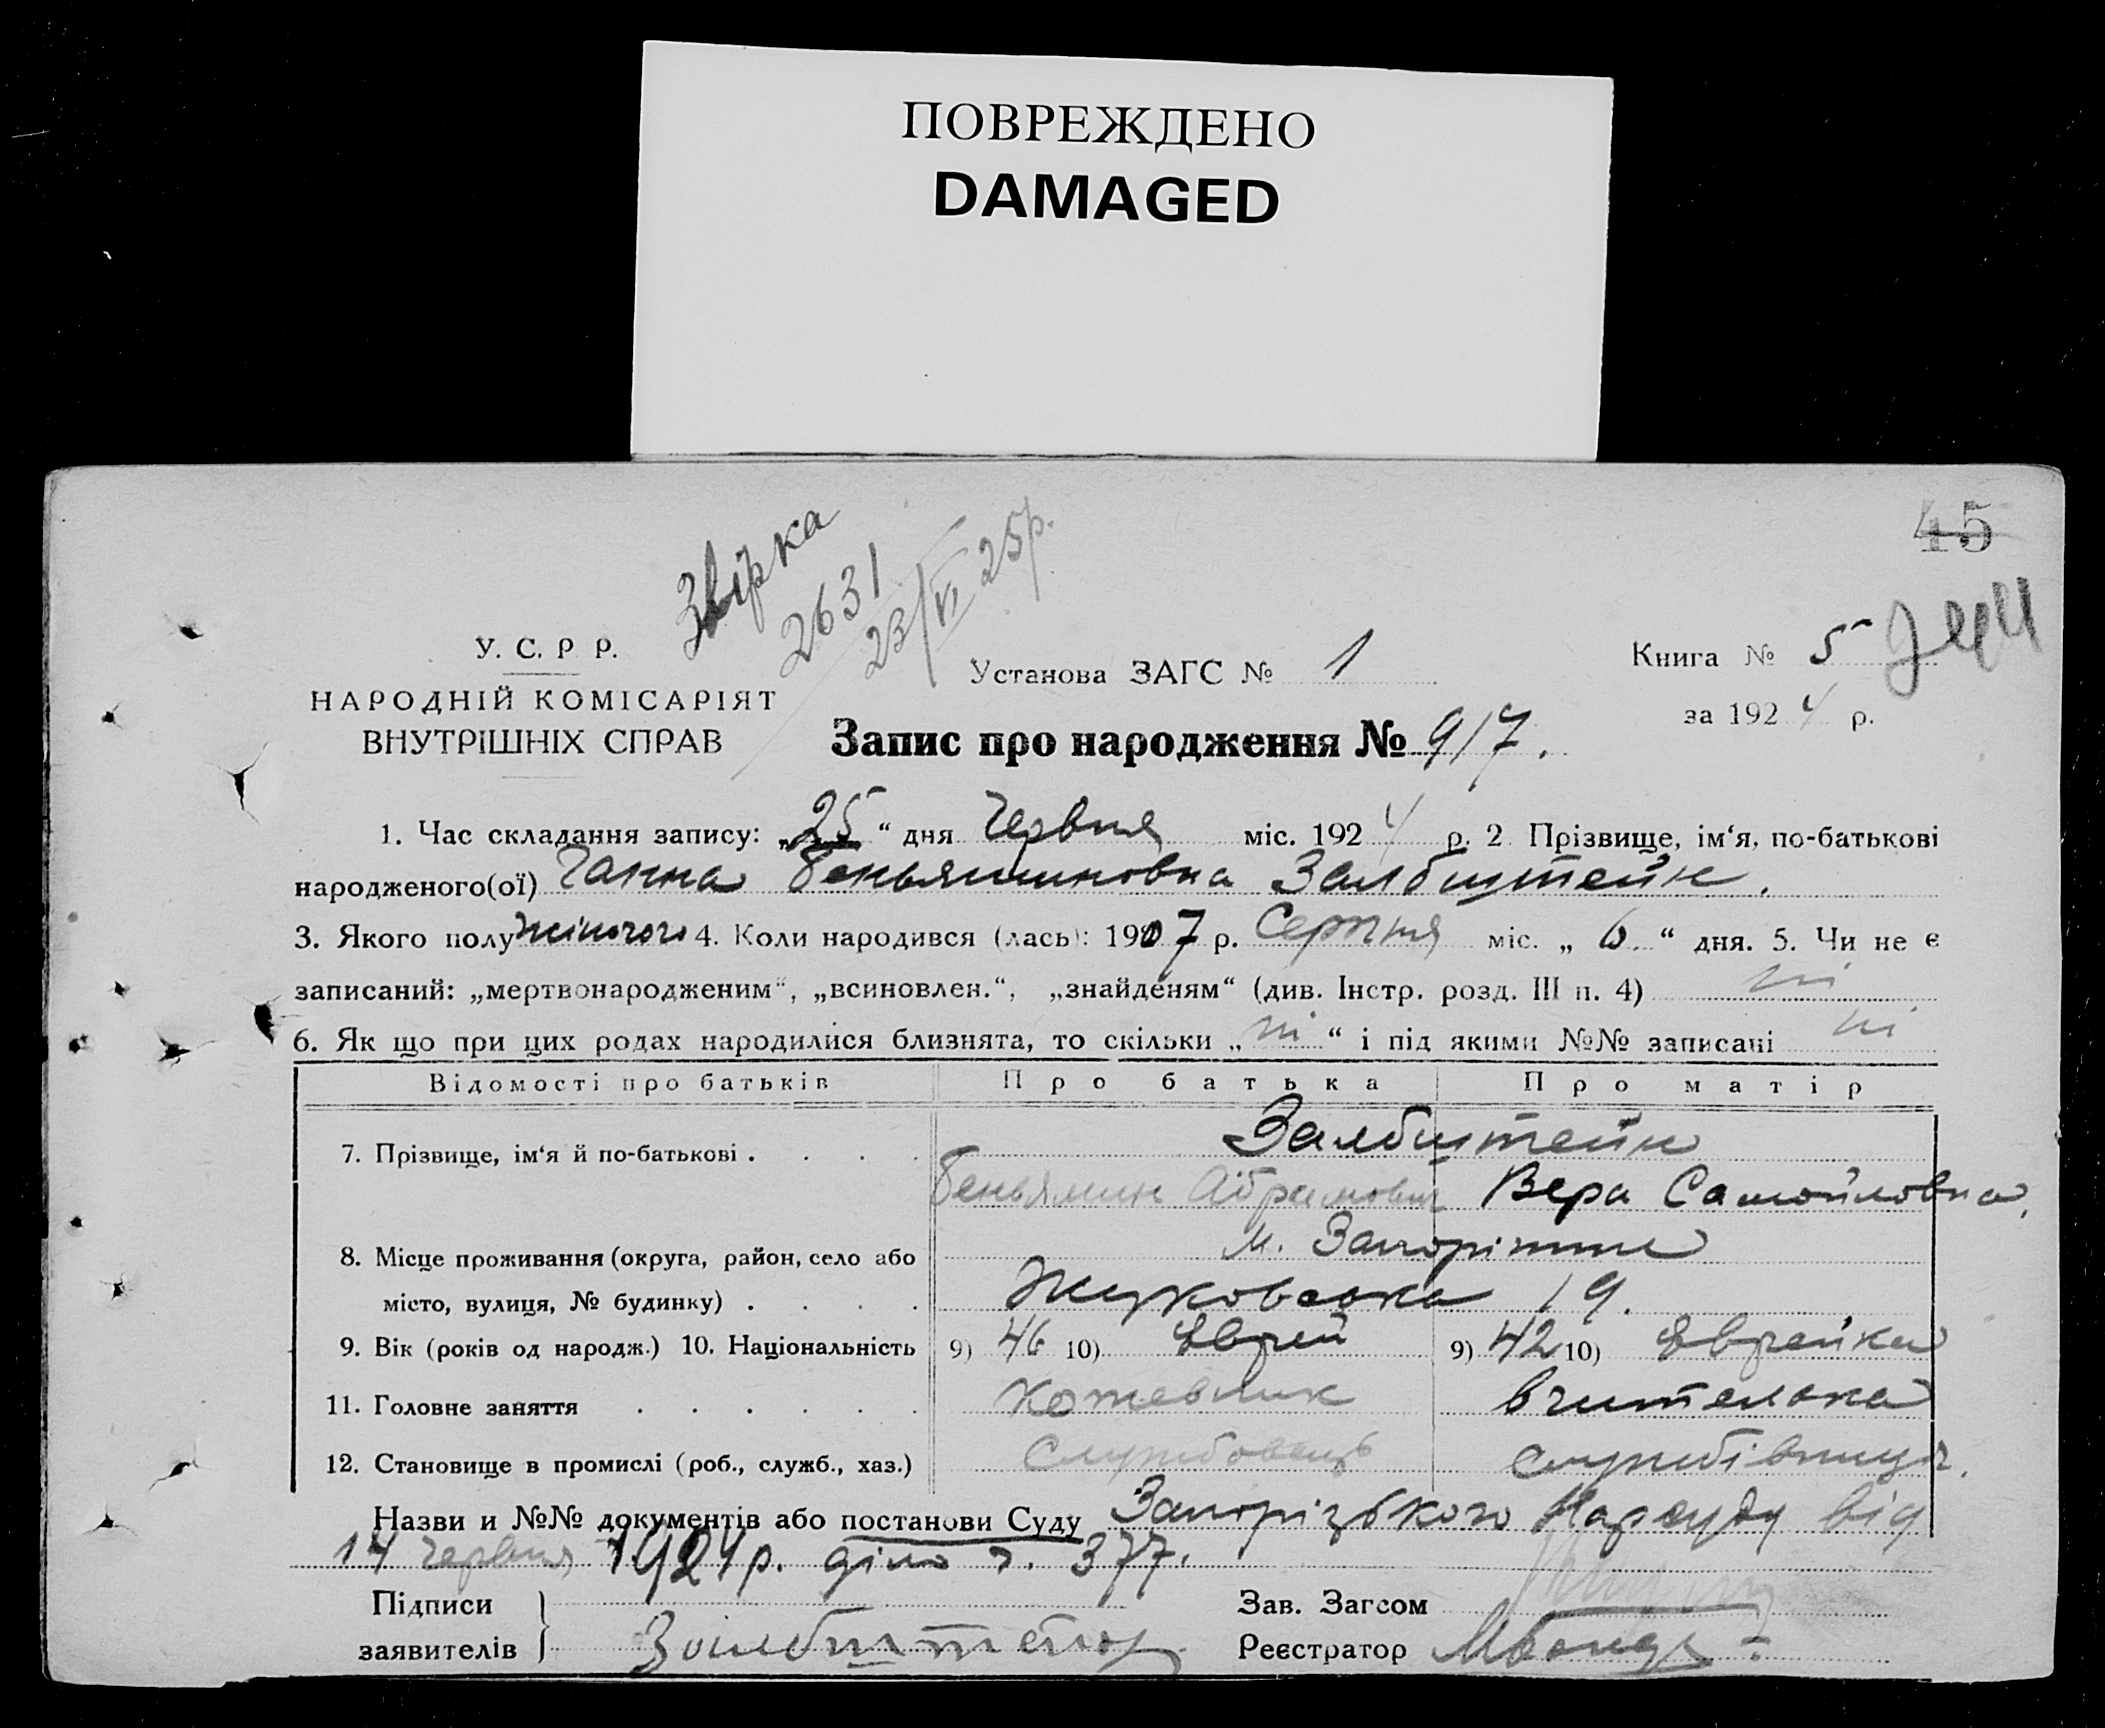 ПОВРЕЖДЕНО
DAMAGED
45
Звірка
2631
23/VI 25р.
У. С. Р Р.
НАРОДНІЙ КОМІСАРІЯТ
ВНУТРІШНІХ СПРАВ
Установа ЗАГС № 1
Книга № 5
за 1924 р.
Запис про народження № 917.
1. Час складання запису: „25“ дня Червня міс. 1924 р. 2 Прізвище, ім‘я, по-батькові
народженого(ої) Ганна Беньяминовна Залбштейн.
3. Якого полу жіночого 4. Коли народився (лась): 1907 р. Серпня міс. „ 6. “ дня. 5. Чи не є
записаний: „мертвонародженим“, „всиновлен.“, „знайденям“ (див. Інстр. розд. III п. 4) ні
6. Як що при цих родах народилися близнята, то скільки „ ні “ і під якими №№ записані ні
Відомості про батьків Про батька Про матір
7. Прізвище, ім‘я й по-батькові . . . . Залбштейн
Беньямин Абрамович Вера Самойловна,
8. Місце проживання (округа, район, село або м. Запоріжжє
місто, вулиця, № будинку) . . . . Жуковська 19.
9. Вік (років од народж.) 10. Національність 9) 46 10) Єврей 9) 42 10) Єврейка
11. Головне заняття . . . . . . Кожевник вчителька
12. Становище в промислі (роб., служб., хаз.) Службовець службівниця.
Назви и №№ документів або постанови Суду Запорізького Нарсуду від
14 червня 1924 р. діло ч. 377.
Підписи
заявителів Залбштейн
Зав. Загсом
Реєстратор